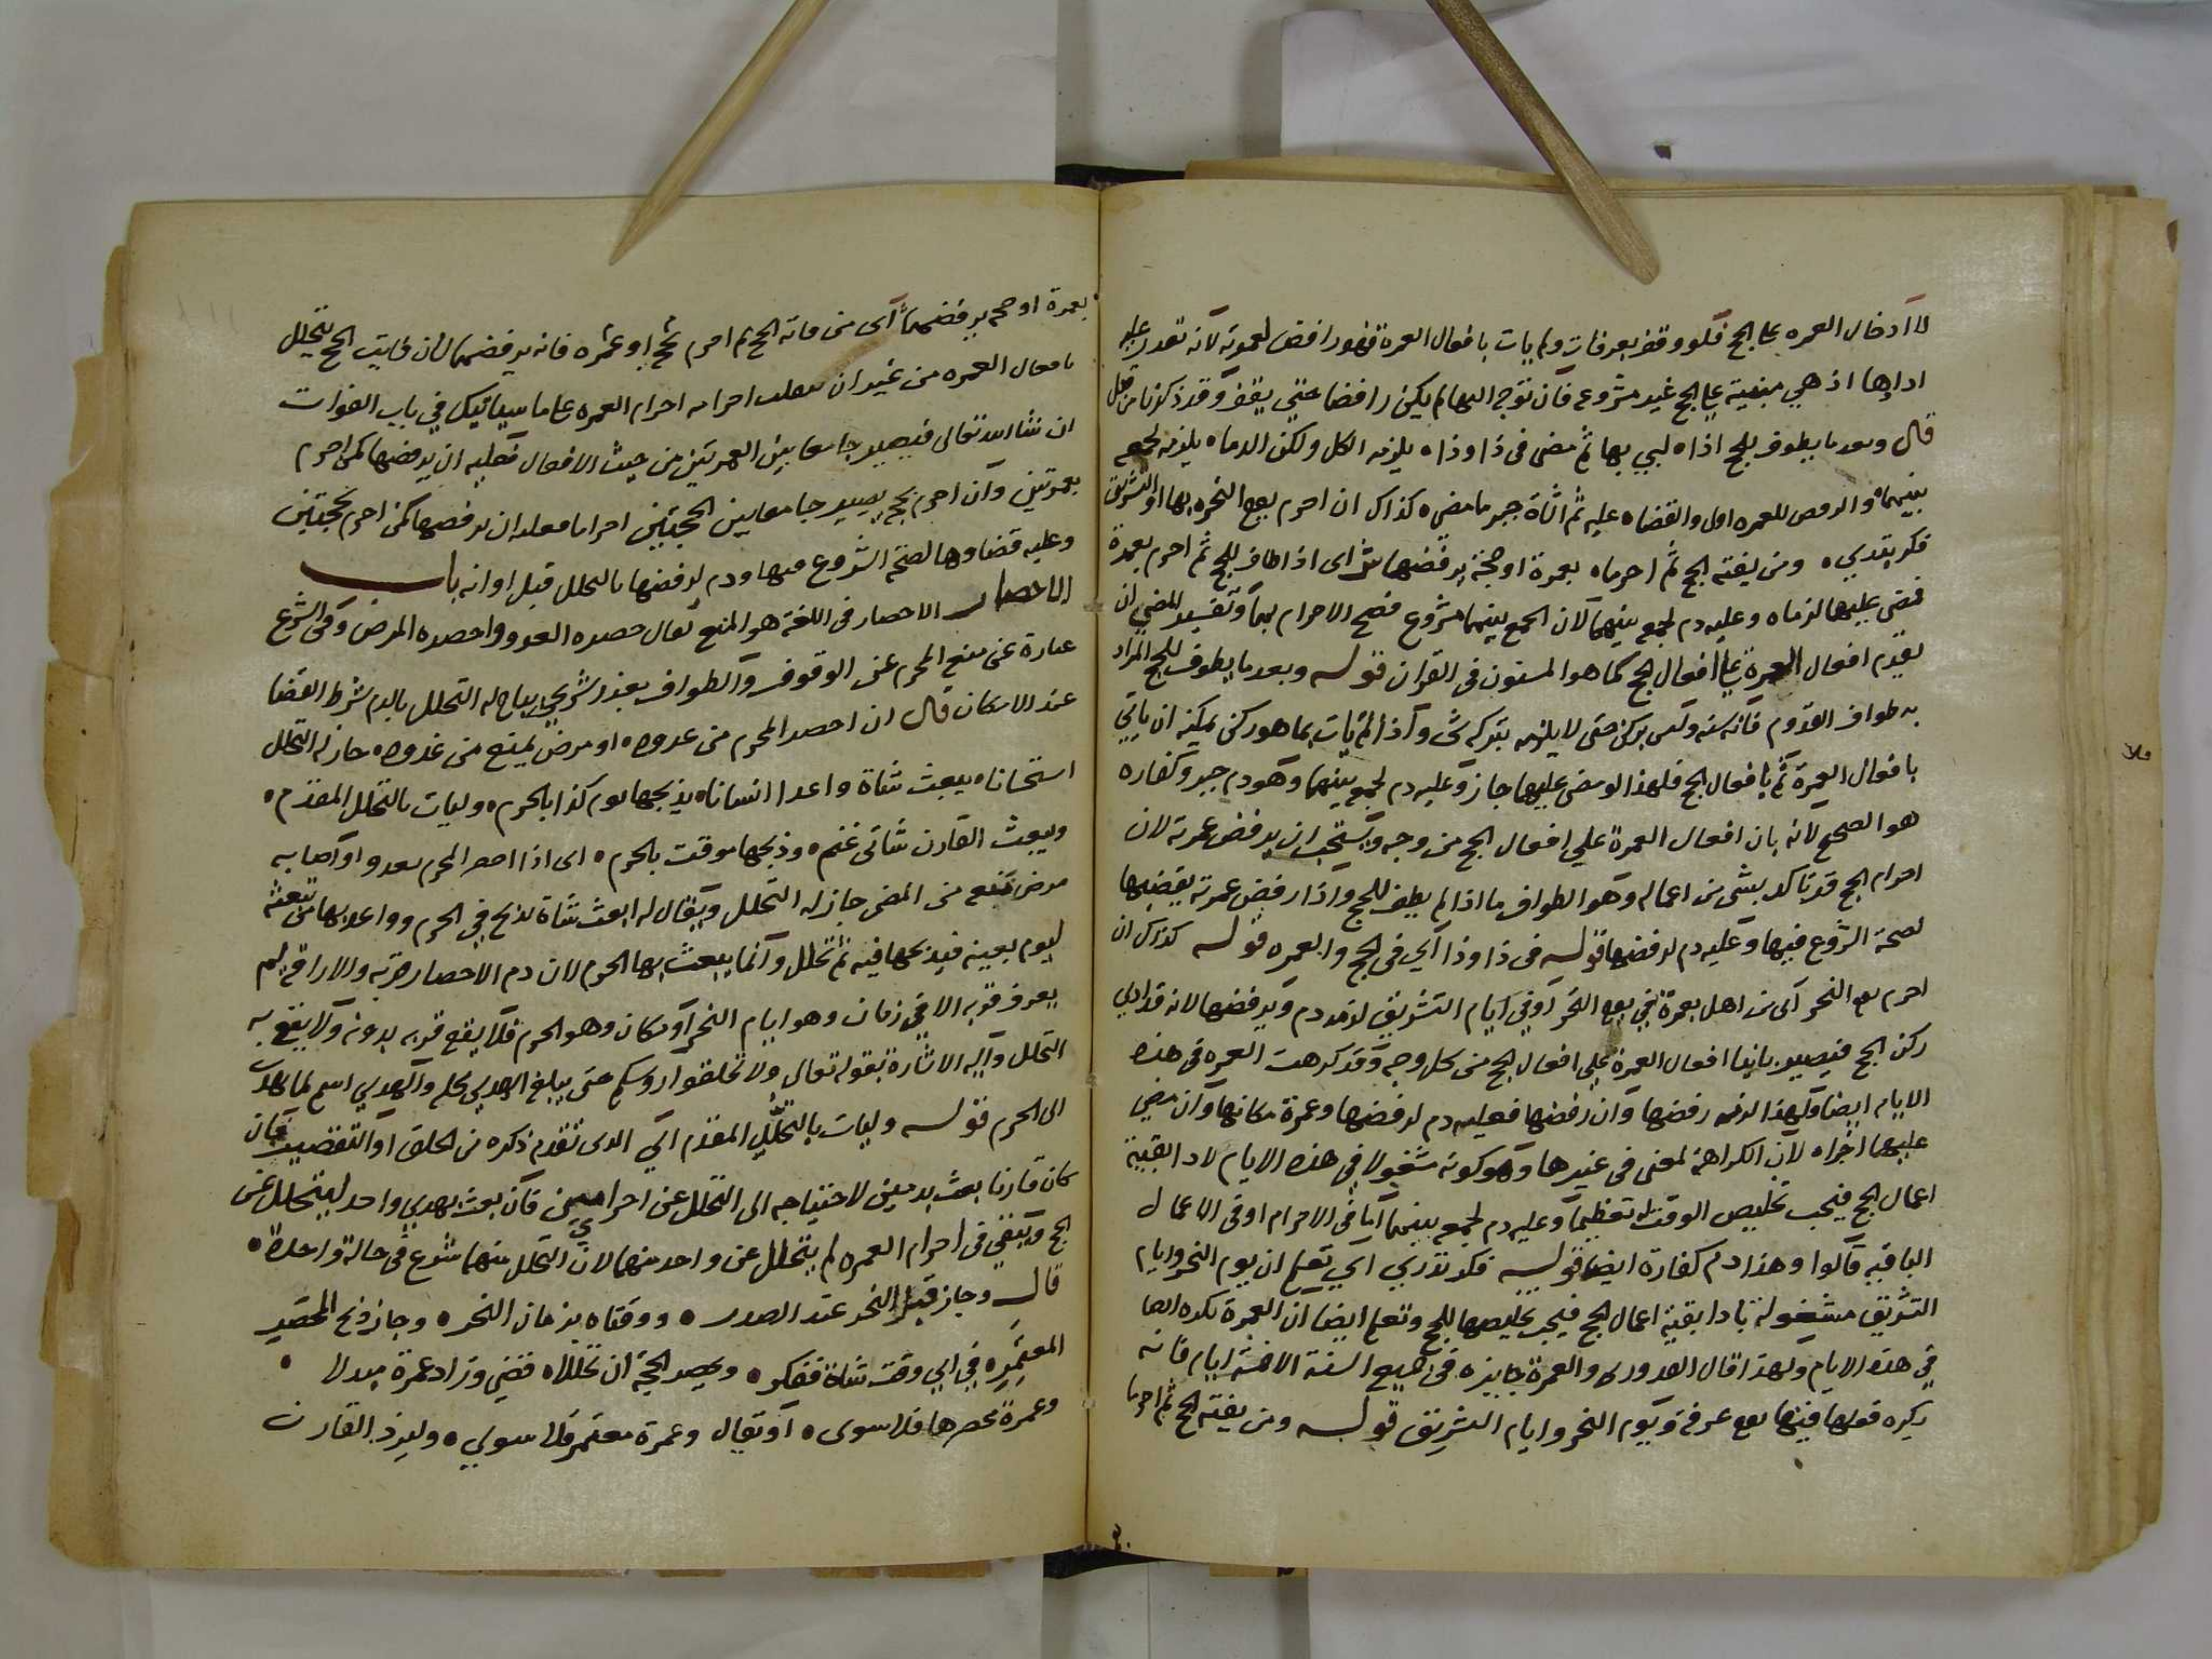 لا ادخال العمره على الحج فلو وقف بعرفات ولم يات بافعال العمرة فهو رافض لعمرته لانه تعذر عليه
اداوها اذ هي مبنية على الحج غير مشروع فان توجه اليها لم يكن رافضا حتى يقف وقد ذكرنا من قبل
قال وبعد ما يطوف للحج اذا ه لبي بها ثم مضى في ذا وذا ه يلزمه الكل ولكن الدما ه يلزمه لجمع
بينهما ه والرفض للعمره اولى والقضا ه عليه ثم الشاة جبر ما مضى ه كذاك ان احرم يوم النحر ه بها او التشريق
فكر يقتدي ه ومن يفته الحج ثم احرما ه بعمرة او حجة يرفضها ش اى اذا طاف للحج ثم احرم بعمرة
فمضى عليهما لزماه وعليه دم لجمع بينهما لان الجمع بينهما مشروع فصح الاحرام بهما وتفسير المضي ان
يقدم افعال العمرة على افعال الحج كما هو المسنون في القران قوله وبعد ما يطوف للحج المراد
به طواف القدوم فانه سنه وليس بركن حتى لا يلزمه بتركه شى واذا لم يات بما هو ركن يمكنه ان ياتي
بافعال العمرة ثم بافعال الحج فلهذا لو مضى عليهما جاز وعليه دم لجمع بينهما وهو دم جبر وكفاره
هو الصحيح لانه بان افعال العمرة على افعال الحج من وجه ويستحب ان يرفض عمرته لان
احرام الحج قد تاكد بشى من اعماله وهو الطواف ما اذا لم يطف للحج واذا رفض عمرته يقضيها
لصحة الشروع فيها وعليه دم لرفضها قوله في ذا وذا اي في الحج والعمره قوله كذاك ان
احرم يوم النحر اى من اهل بعمرة في يوم النحر او في ايام التشريق لزمه دم ويرفضها لانه قد ادى
ركن الحج فيصير بانيا افعال العمرة على افعال الحج من كل وجه وقد كرهت العمره في هذه
الايام ايضا ولهذا لزمه رفضها وان رفضها فعليه دم لرفضها وعمرة مكانها وان مضى
عليهما اجزاه لان الكراهة لمعنى في غيرها وهو كونه مشغولا في هذه الايام لادا بقية
اعمال الحج فيجب تخليص الوقت له تعظيما وعليه دم لجمع بينهما اما في الاحرام او في الاعمال
الباقيه قالوا وهذا دم كفارة ايضا قوله فكر تدري اي تعلم ان يوم النحر وايام
التشريق مشغولة بادا بقية اعمال الحج فيجب تخليصها للحج وتعلم ايضا ان العمرة تكره ايضا
في هذه الايام ولهذا قال القدوري والعمرة جايزه في جميع السنة الا خمسة ايام فانه
يكره فعلها فيها يوم عرفة ويوم النحر وايام التشريق قوله ومن يفته الحج ثم احرما
بعمرة او حجه يرفضهما اى من فاته الحج ثم احرم بحج او عمره فانه يرفضهما لان فايت الحج يتحلل
بافعال العمره من غير ان ينقلب احرامه احرام العمره على ما سياتيك في باب الفوات
ان شا الله تعالى فيصير جامعا بين العمرتين من حيث الافعال فعليه ان يرفضها كمن احرم
بعمرتين وان احرم بحج يصير جامعا بين الحجتين احراما فعليه ان يرفضها كمن احرم بحجتين
وعليه قضاوها لصحة الشروع فيها ودم لرفضها بالتحلل قبل اوانه باب
الاحصار الاحصار في اللغة هو المنع يقال حصره العدو واحصره المرض وفي الشرع
عبارة عن منع المحرم عن الوقوف والطواف بعذر شرعي يباح له التحلل بالدم بشرط القضا
عند الامكان قال ان احصر المحرم من عدوه ه او مرض يمنع من غدوه ه جاز له التحلل
استحسانا ه يبعث شاة واعدا انسانا ه يذبحها يوم كذا بالحرم ه وليات بالتحلل المقدم ه
ويبعث القارن شاتى غنم ه وذبحها موقت بالحرم ه اى اذا احصر المحرم بعدو او اصابه
مرض يمنعه من المضى جاز له التحلل ويقال له ابعث شاة تذبح في الحرم وواعد بها من تبعثه
ليوم بعينه فيذبحها فيه ثم تحلل وانما يبعث بها الحرم لان دم الاحصار قربة والاراقة لم
يعرف قربه الا في زمان وهو ايام النحر او مكان وهو الحرم فلا يقع قربه بدونه ولا يقع به
التحلل واليه الاشارة بقوله تعالى ولا تحلقوا روسكم حتى يبلغ الهدي محله والهدي اسم لما يهدى
الى الحرم قوله وليات بالتحلل المقدم اي الذى تقدم ذكره من الحلق او التقصير فان
كان قارنا بعث بدمين لاحتياجه الى التحلل عن احرامين فان بعث بهدي واحد ليتحلل عن
الحج ويبقى في احرام العمره لم يتحلل عن واحد منهما لان التحلل منهما شرع في حالة واحدة ه
قال وجاز قبل النحر عند الصدر ه ووقتاه بزمان النحر ه وجاز ذبح المحصر
المعتمر ه في اي وقت شاة ففكر ه ويصير الحجة ان تحللا ه قضى وزاد عمرة مبدلا ه
وعمرة محصرها فلا سوى ه او تقال وعمرة معتمر فلا سوي ه وليزد القارن